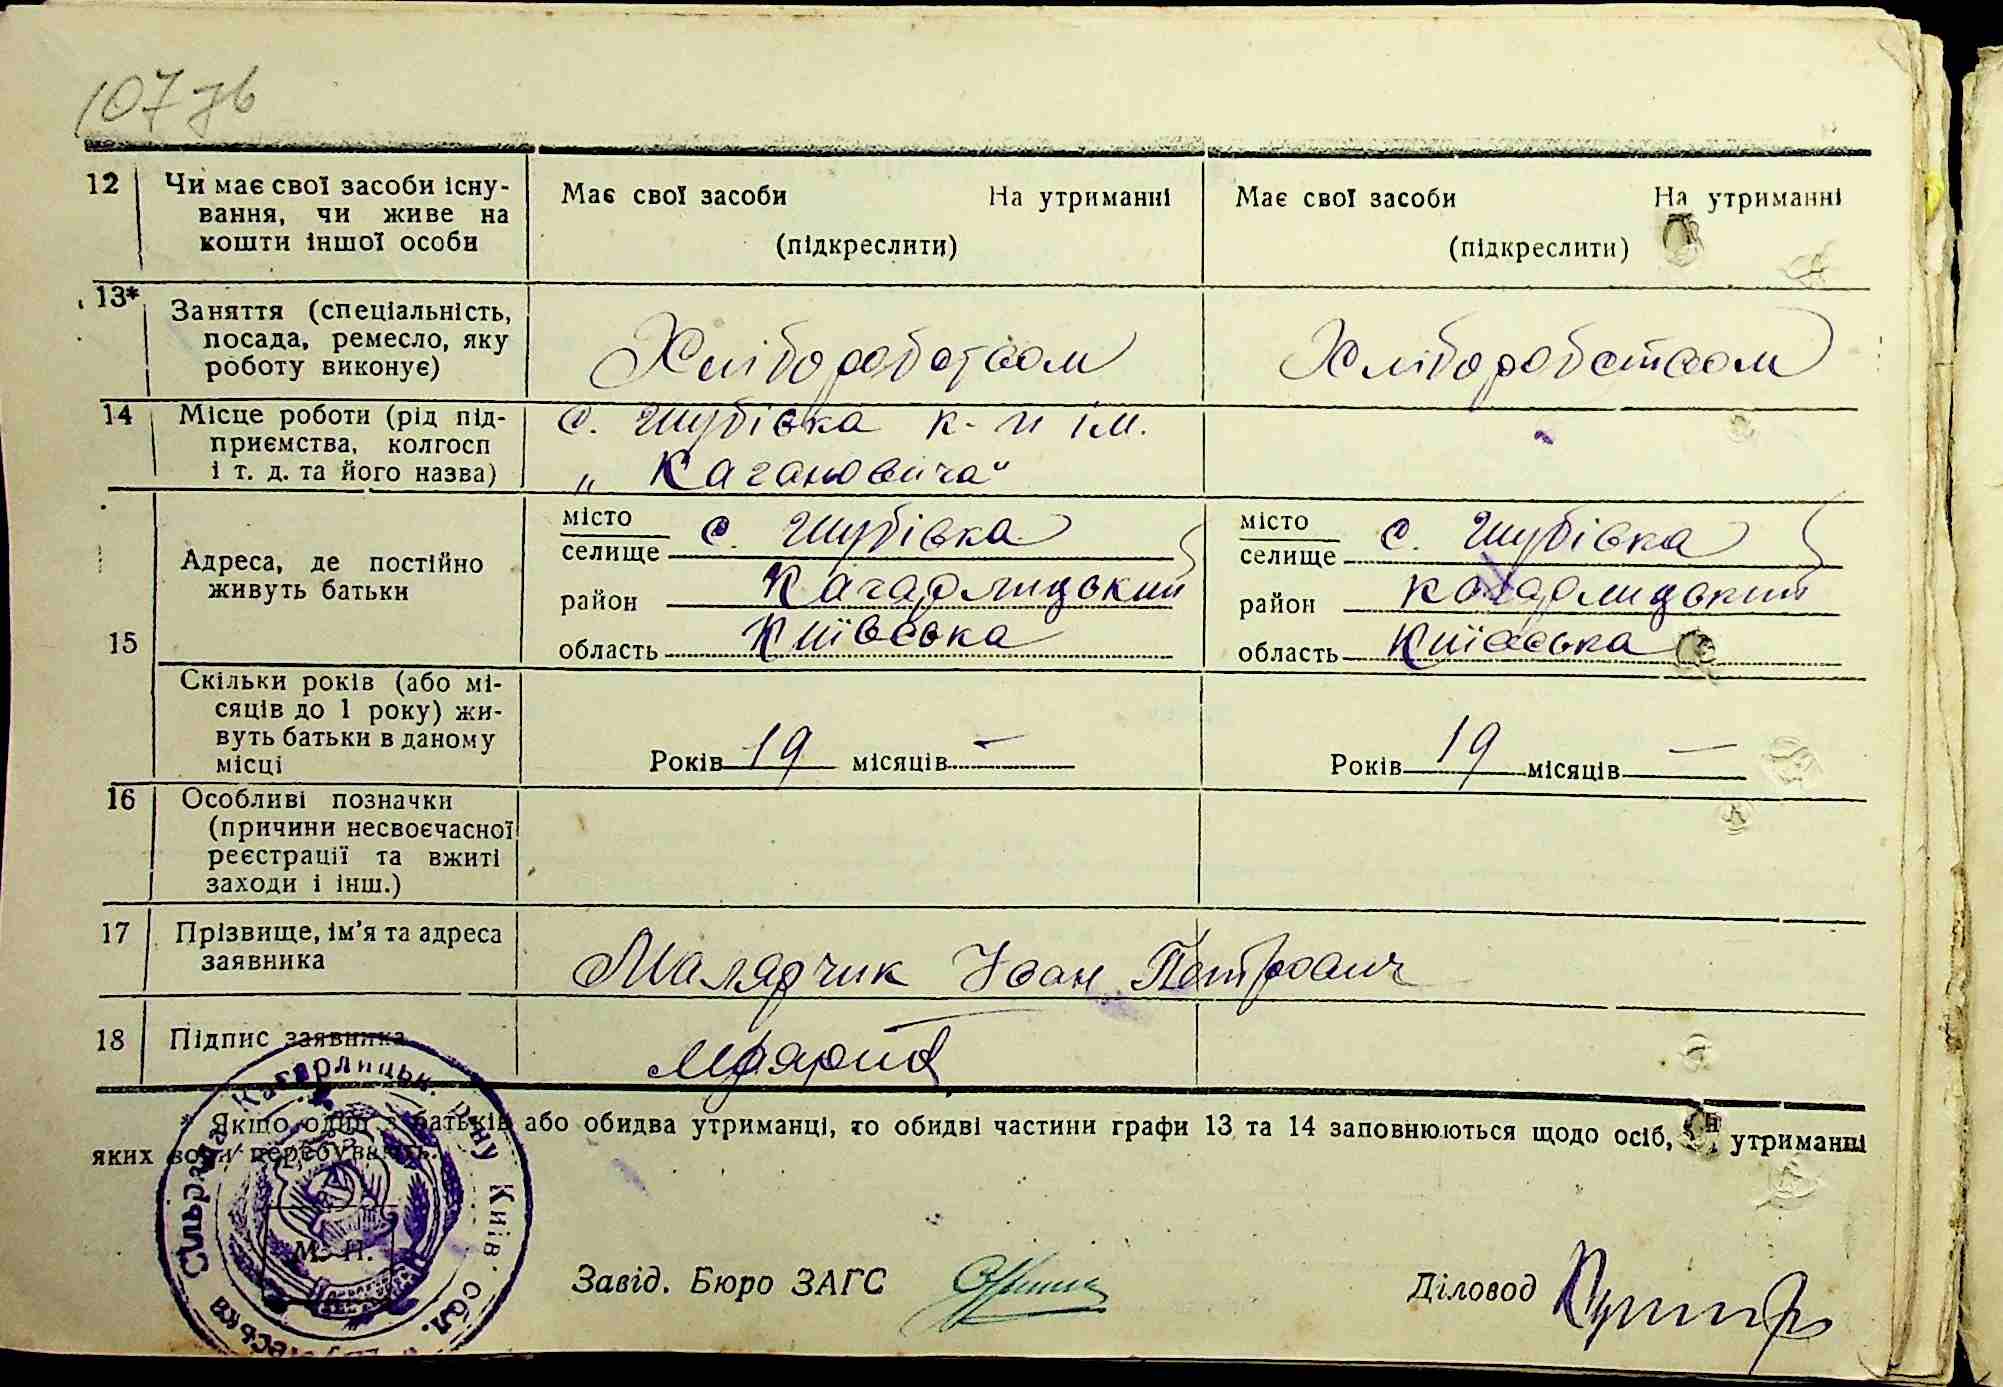 107 зв
12 Чи має свої засоби існу-
вання, чи живе на
кошти іншої особи
Має свої засоби На утриманні
(підкреслити)
Має свої засоби На утриманні
(підкреслити)
13* Заняття (спеціальність,
посада, ремесло, яку
роботу виконує)
Хліборобством
Хліборобством
14 Місце роботи (рід під-
приємства, колгосп
і т. д. та його назва)
с. Шубівка к-п ім.
„Кагановича"
15 Адреса, де постійно
живуть батьки
місто
селище с. Шубівка
район Кагарлицький
область Київська
місто
селище с. Шубівка
район Кагарлицький
область Київська
15 Скільки років (або мі-
сяців до 1 року) жи-
вуть батьки в даному
місці
Років 19 місяців —
Років 19 місяців —
16 Особливі позначки
(причини несвоєчасної
реєстрації та вжиті
заходи і інш.)
17 Прізвище, ім'я та адреса
заявника
Малярчик Іван Петрович
18 Підпис заявника
* Якщо один з батьків або обидва утриманці, то обидві частини графи 13 та 14 заповнюються щодо осіб, на утриманні
яких вони перебувають.
Кагарлицьк. р-ну Київ. обл.
Сільрада
М. П.
Завід. Бюро ЗАГС
Діловод